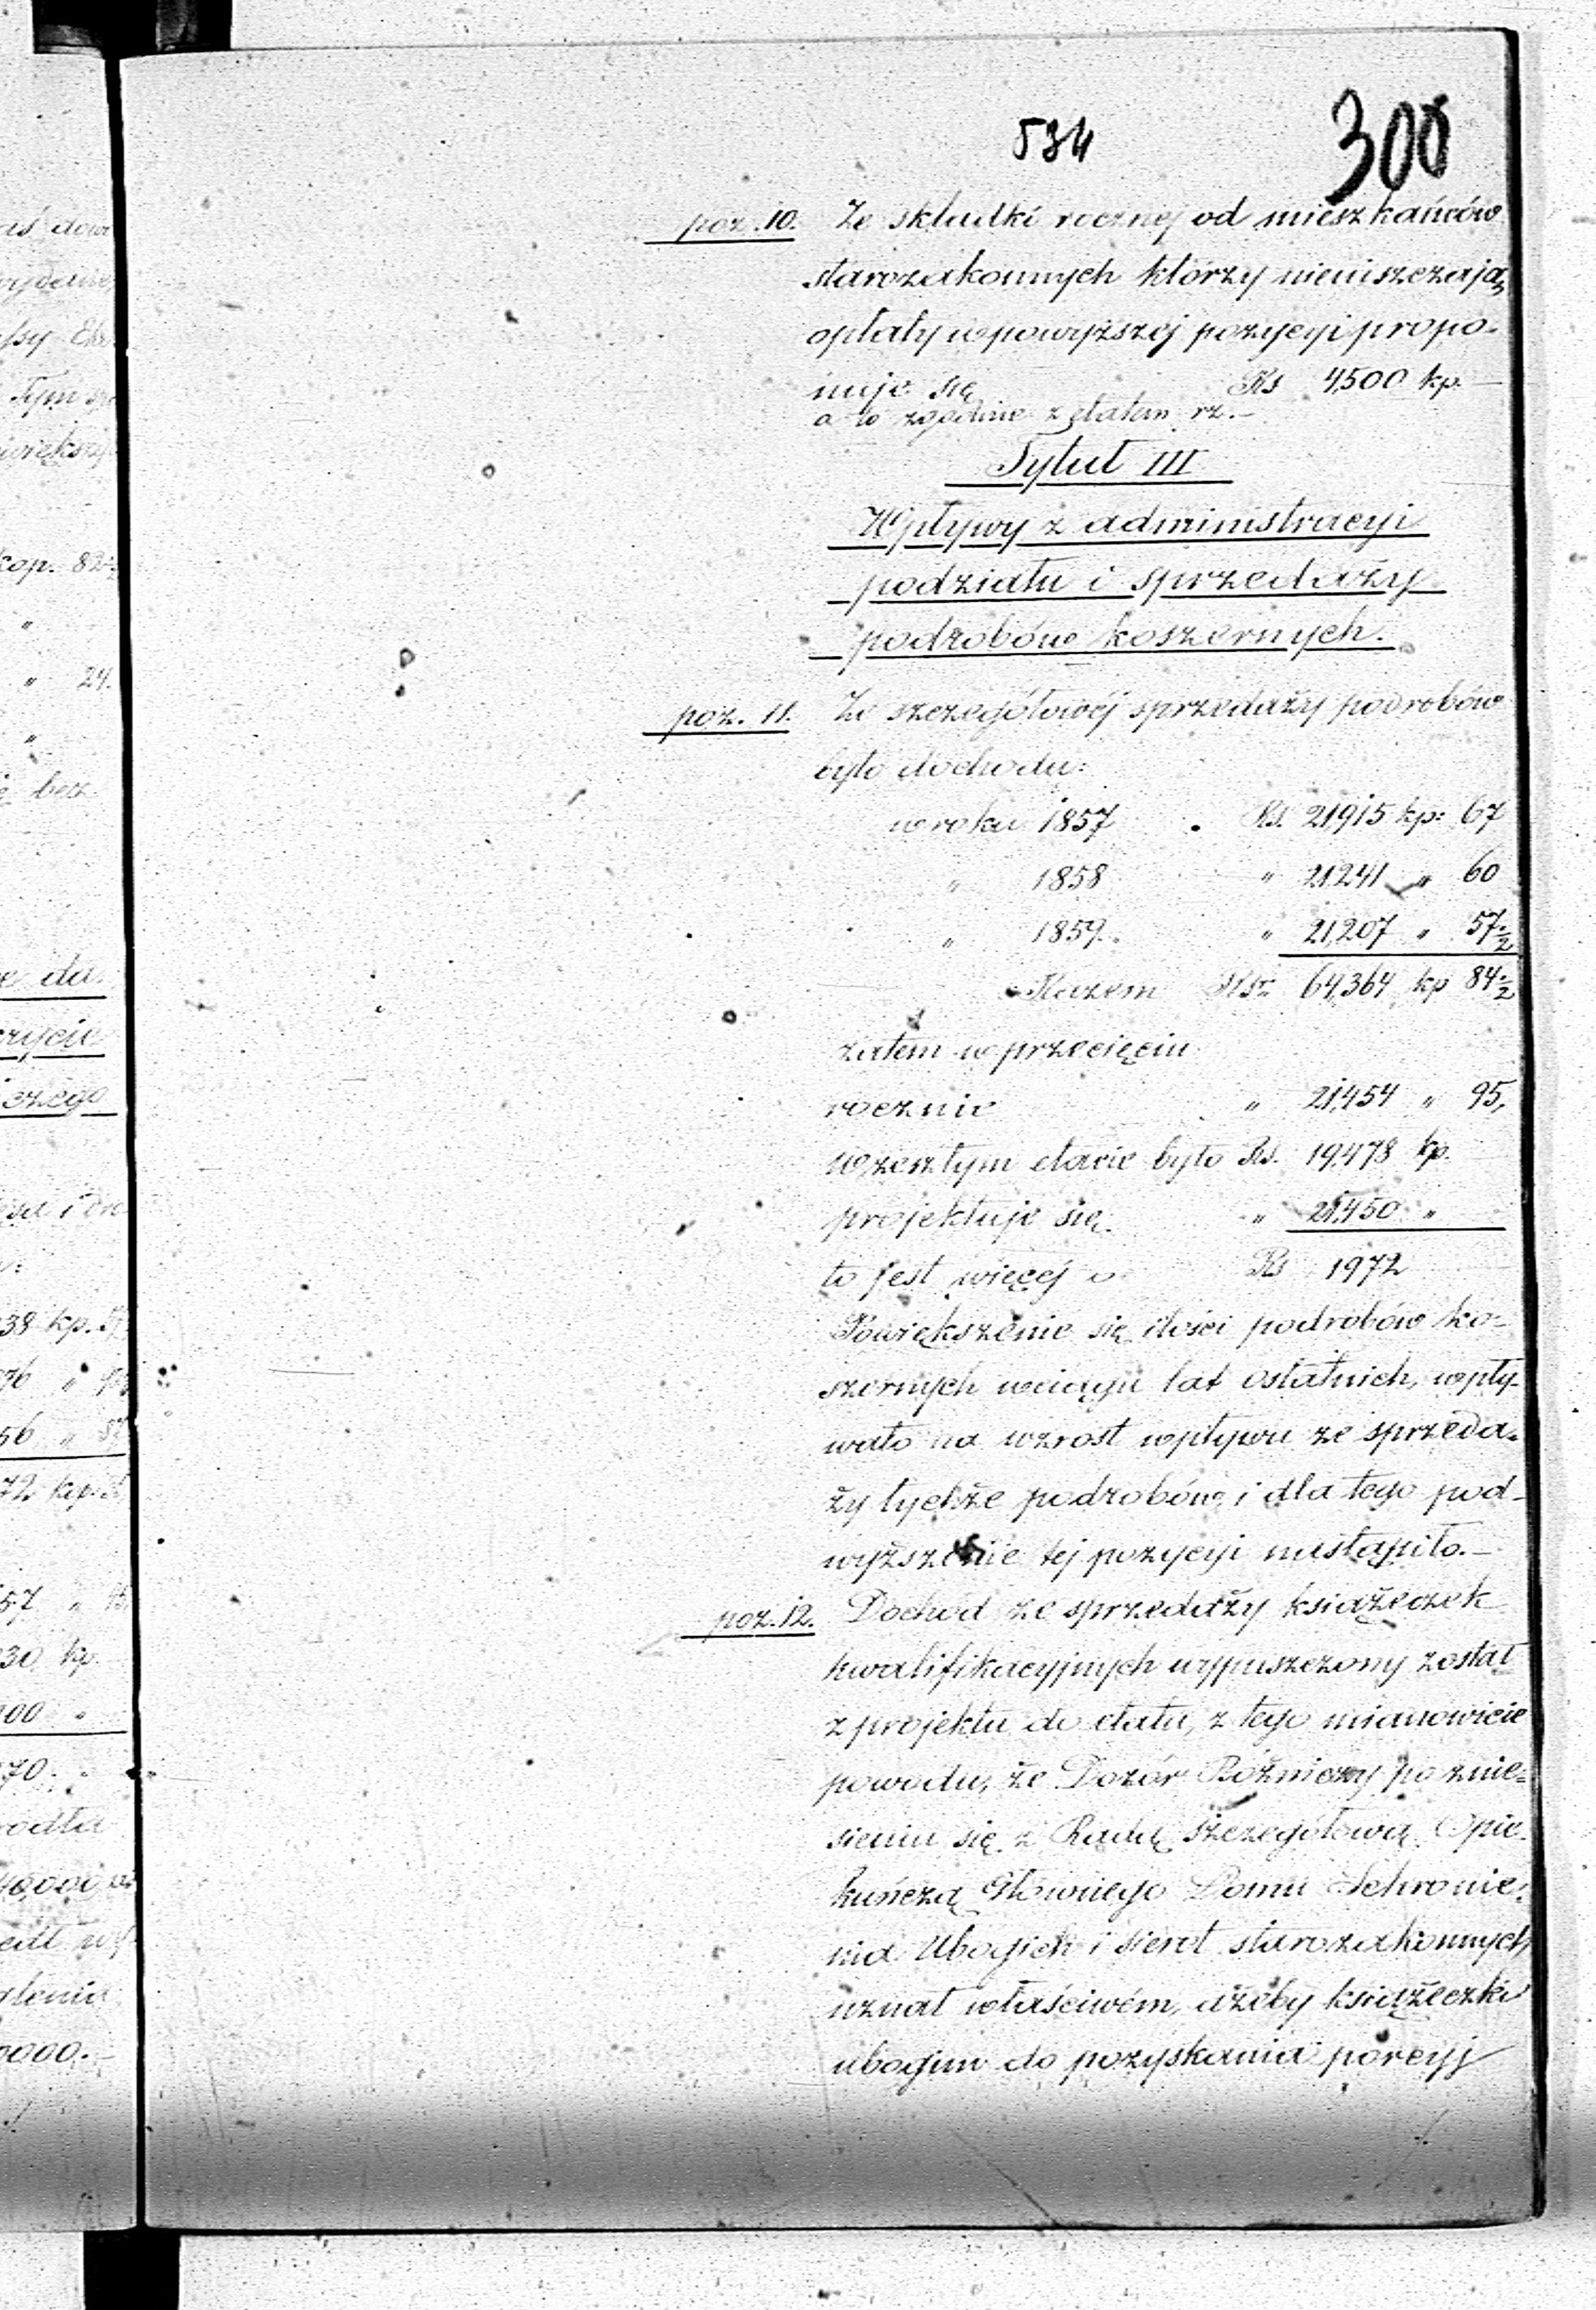 534
300
poz. 10. Ze składki rocznej od mieszkańców
starozakonnych którzy nieuiszczają
opłaty w powyższej pozycyi propo-
nuje się Rs 4,500 kp. —
a to zgodnie z etatem rz. —
Tytuł III
Wpływy z administracyi
podziału i sprzedaży
podrobów koszernych.
poz. 11. Ze szczegółowéj sprzedaży podrobów
było dochodu:
w roku 1857 . Rs. 21915 kp: 67
" 1858 " 21241 " 60
" 1859. " 21,207 " 57 ½
Razem Rsr 64,364 kp 84 ½
zatem w przecięciu
rocznie " 21,454 " 95,
W zeszłym etacie było Rs. 19,478 kp.
projektuje się " 21,450 "
to jest więcéj o Rs 1972
Powiększenie się ilości podrobów ko-
szernych w ciągu lat ostatnich, wpły-
wało na wzrost wpływu ze sprzeda-
ży tychże podrobów, i dla tego pod-
wyższenie tej pozycyi nastąpiło. —
poz. 12. Dochód ze sprzedaży książeczek
kwalifikacyjnych wypuszczony został
z projektu do etatu, z tego mianowicie
powodu, że Dozór Bóżniczy po znie-
sieniu się z Radą Szczegółową Opie-
kuńczą Głównego Domu Schronie-
nia Ubogich i Sierot starozakonnych
uznał właściwém, ażeby książeczki
ubogim do pozyskania porcyj